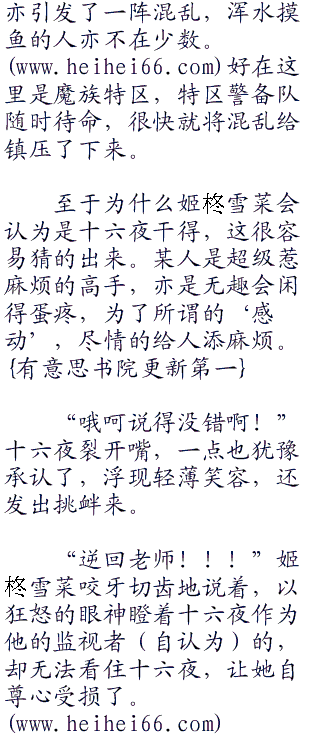 亦引发了一阵混乱，浑水摸
鱼的人亦不在少数。
(www.heihei66.com)好在这
里是魔族特区，特区警备队
随时待命，很快就将混乱给
镇压了下来。
至于为什么姬柊雪菜会
认为是十六夜干得，这很容
易猜的出来。某人是超级惹
麻烦的高手，亦是无趣会闲
得蛋疼，为了所谓的‘感
动’，尽情的给人添麻烦。
{有意思书院更新第一}
“哦呵说得没错啊！”
十六夜裂开嘴，一点也犹豫
承认了，浮现轻薄笑容，还
发出挑衅来。
“逆回老师！！！”姬
柊雪菜咬牙切齿地说着，以
狂怒的眼神瞪着十六夜作为
他的监视者（自认为）的，
却无法看住十六夜，让她自
尊心受损了。
(www.heihei66.com)